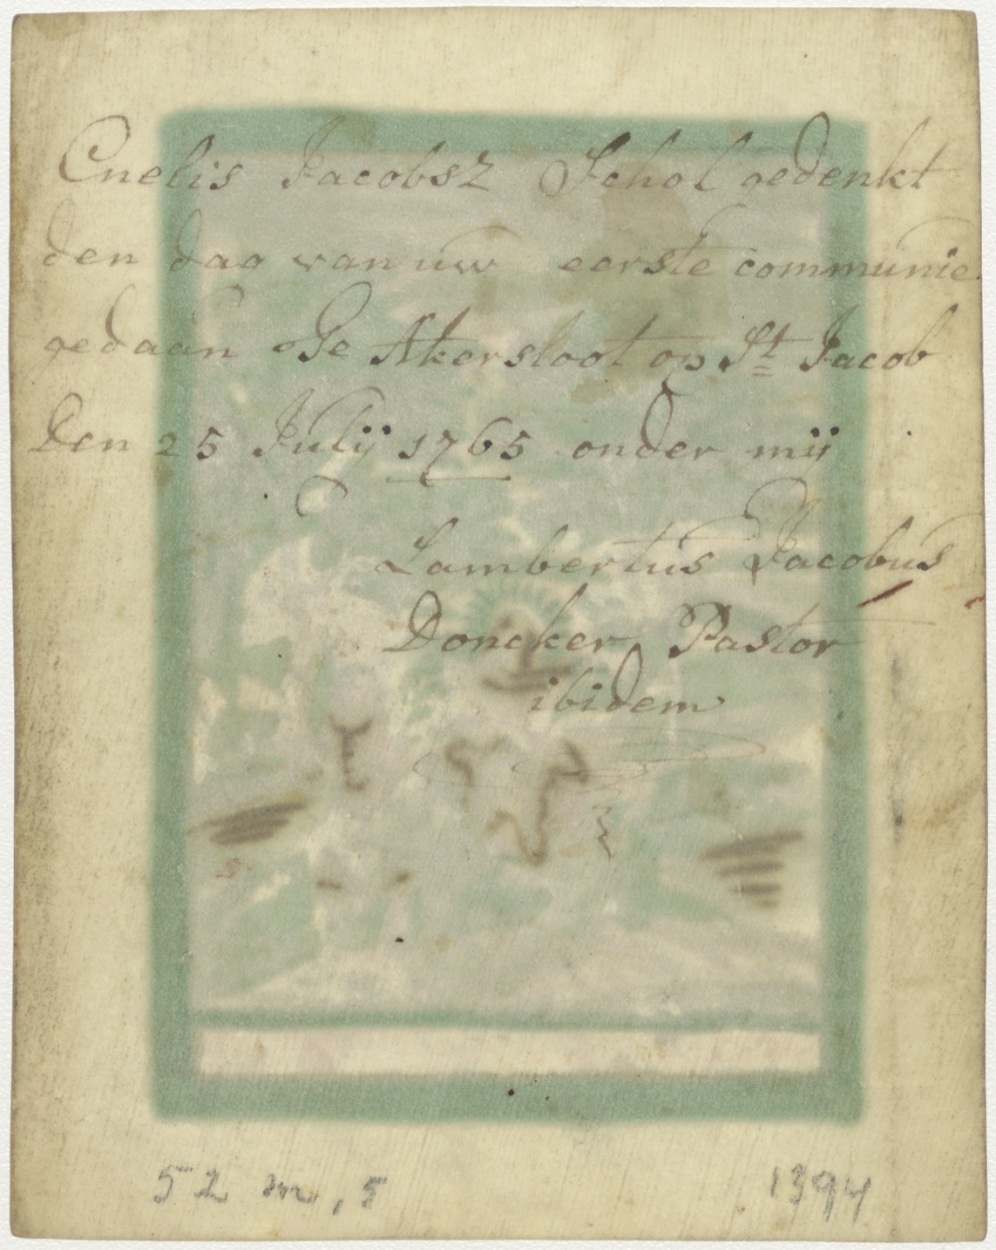 Cnelis Jacobsz Schol gedenkt
den dag van uw eerste communie
gedaan Te Akersloot op St Jacob
Den 25 Julij 1765 onder mij
Lambertus Jacobus
Doncker, Pastor
ibidem
52 m, 5 1394